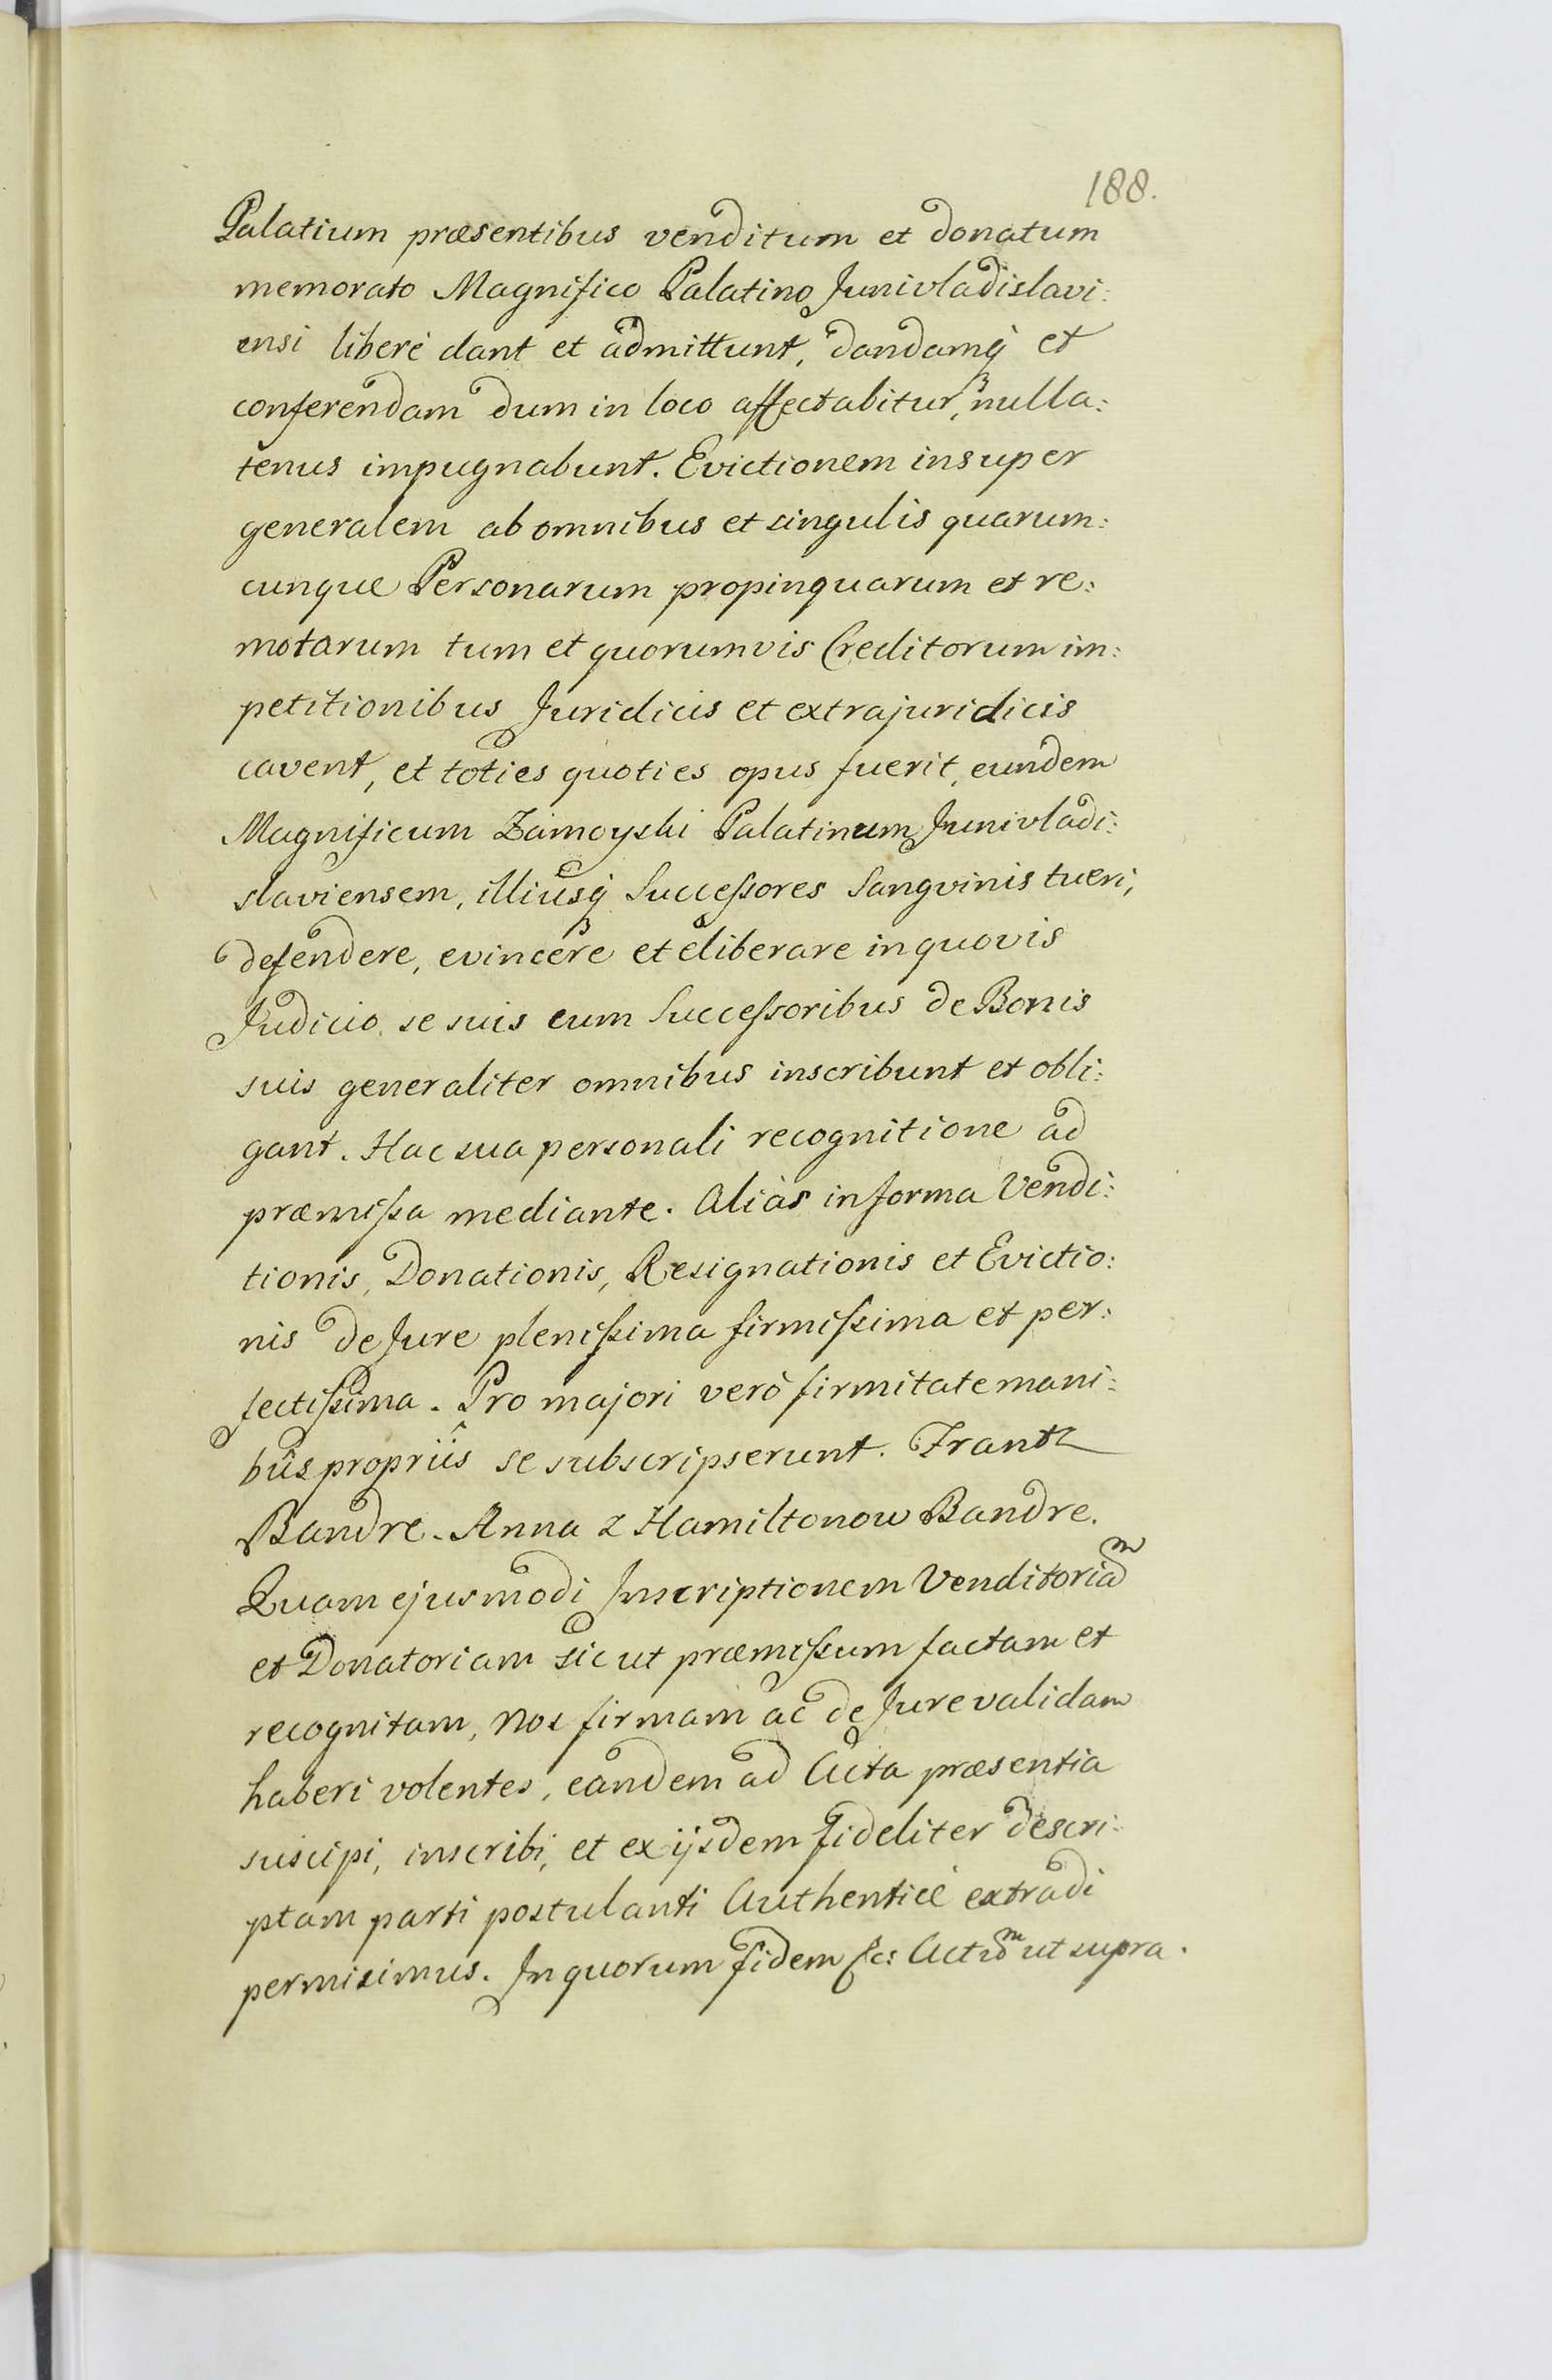 188.
Palatium præsentibus venditum et donatum
memorato Magnifico Palatino Junivladislavi:
ensi liberè dant et admittunt, dandamq́ et
conferendam dum in loco affectabitur, nulla:
tenus impugnabunt. Evictionem insuper
generalem ab omnibus et singulis quarum:
cunque Personarum propinquarum et re:
motarum tum et quorumvis Creditorum im:
petitionibus Juridicis et extrajuridicis
cavent, et toties quoties opus fuerit, eundem
Magnificum Zamoyski Palatinum Junivladi:
slaviensem, illiusq́ Succeſsores Sangvinis tueri,
defendere, evincere et eliberare in quovis
Judicio, se suis cum Succeſsoribus de Bonis
suis generaliter omnibus inscribunt et obli:
gant. Hac sua personali recognitione ad
præmiſsa mediante. Aliàs in forma Vendi:
tionis, Donationis, Resignationis et Evictio:
nis de Jure pleniſsima firmiſsima et per:
fectiſsima. Pro majori verò firmitate mani:
bûs propriîs se subscripserunt. Frantz
Bandre. Anna z Hamiltonow Bandre.
Quam ejusmodi Inscriptionem Venditoriaᵐ
et Donatoriam sic ut præmiſsum factam et
recognitam, Nos firmam ac de Jure validam
haberi volentes, eandem ad Acta præsentia
suscipi, inscribi, et ex ijsdem fideliter descri:
ptam parti postulanti Authenticè extradi
permisimus. In quorum fidem &c: Actuᵐ ut supra.